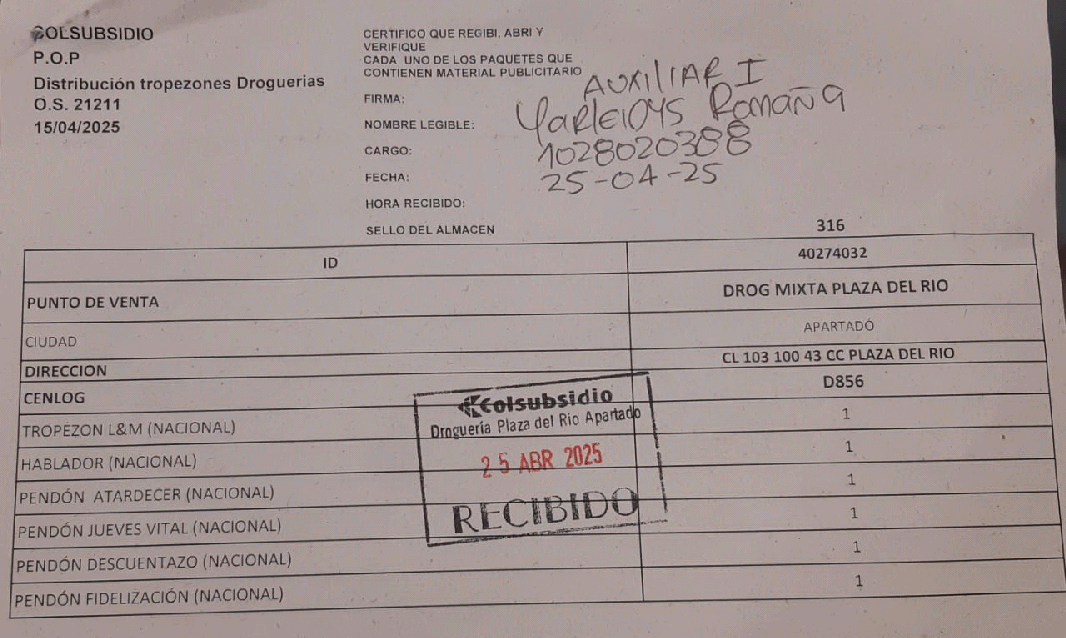 COLSUBSIDIO
P.O.P
Distribución tropezones Droguerias
O.S. 21211
15/04/2025
CERTIFICO QUE RECIBI, ABRI Y
VERIFIQUE
CADA UNO DE LOS PAQUETES QUE
CONTIENEN MATERIAL PUBLICITARIO
AUXILIAR I
FIRMA:
NOMBRE LEGIBLE: Yarleidys Romaña
CARGO: 1028020388
FECHA: 25-04-25
HORA RECIBIDO:
SELLO DEL ALMACEN
316
ID 40274032
PUNTO DE VENTA DROG MIXTA PLAZA DEL RIO
CIUDAD APARTADÓ
DIRECCION CL 103 100 43 CC PLAZA DEL RIO
CENLOG D856
TROPEZON L&M (NACIONAL) 1
HABLADOR (NACIONAL) 1
PENDÓN ATARDECER (NACIONAL) 1
PENDÓN JUEVES VITAL (NACIONAL) 1
PENDÓN DESCUENTAZO (NACIONAL) 1
PENDÓN FIDELIZACIÓN (NACIONAL) 1
Colsubsidio
Droguería Plaza del Rio Apartado
25 ABR 2025
RECIBIDO